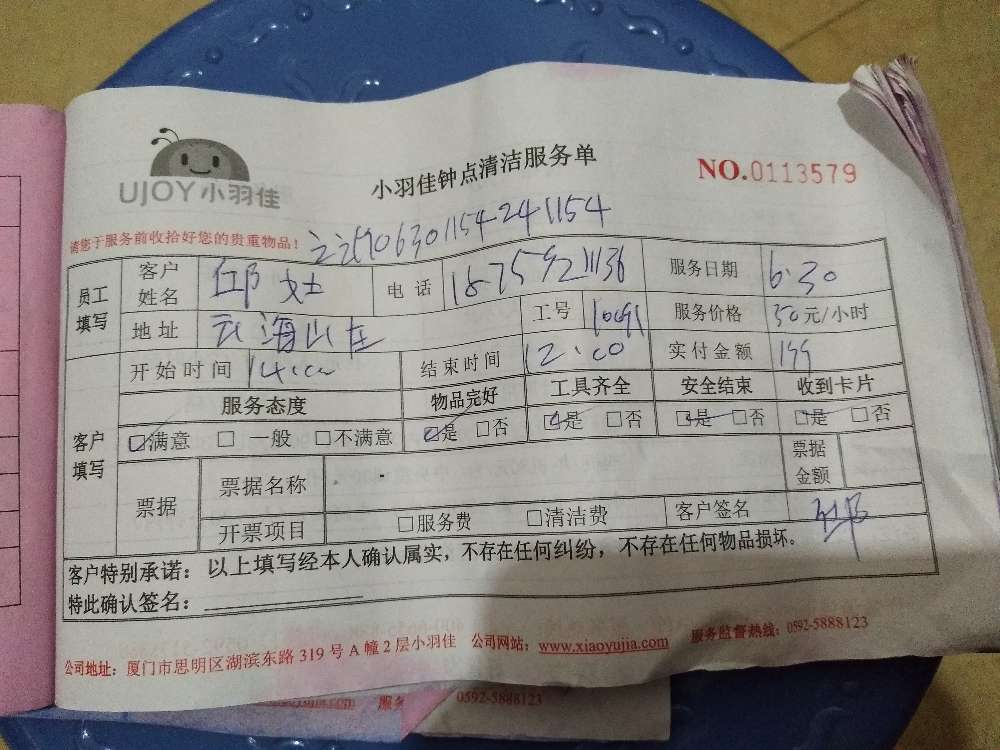 UJOY小羽佳
小羽佳钟点清洁服务单
NO.0113579
请您于服务前收拾好您的贵重物品！
1906301154241154
员工填写 客户姓名 邱女士 电话 服务日期 6.30
地址 云海山庄 工号 服务价格 50元/小时
开始时间 14:00 结束时间 12:00 实付金额 199
客户填写 服务态度 物品完好 工具齐全 安全结束 收到卡片
☑满意 □一般 □不满意 ☑是 □否 ☑是 □否 ☑是 □否 ☑是 □否
票据 票据名称 票据金额
开票项目 □服务费 □清洁费 客户签名 邱
客户特别承诺：以上填写经本人确认属实，不存在任何纠纷，不存在任何物品损坏。
特此确认签名：
公司地址：厦门市思明区湖滨东路319号A幢2层小羽佳 公司网站：www.xiaoyujia.com 服务监督热线：0592-5888123
0592-5888123